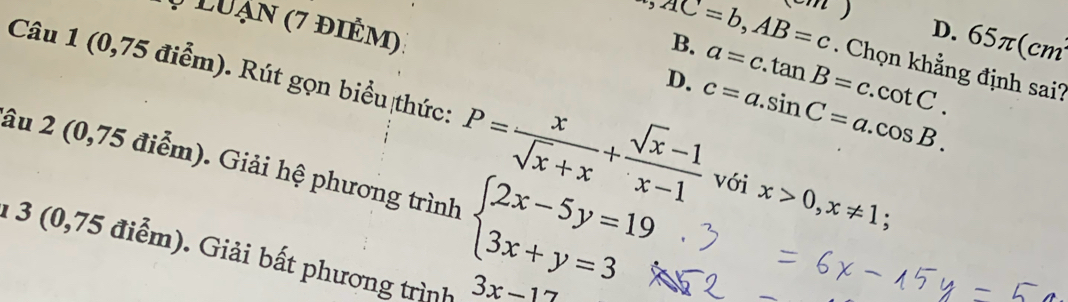 LUẬN (7 ĐIỂM).
AC = b, AB = c. Chọn khẳng định sai?
D. 65π(cm²
B. a = c.tan B = c.cot C.
D. c = a.sin C = a.cos B.
Câu 1 (0,75 điểm). Rút gọn biểu thức: P = x/(√x + x) + (√x − 1)/(x − 1) với x > 0, x ≠ 1;
Câu 2 (0,75 điểm). Giải hệ phương trình { 2x − 5y = 19 . 3
3x + y = 3 2
= 6x − 15y =
3 (0,75 điểm). Giải bất phương trình 3x − 17